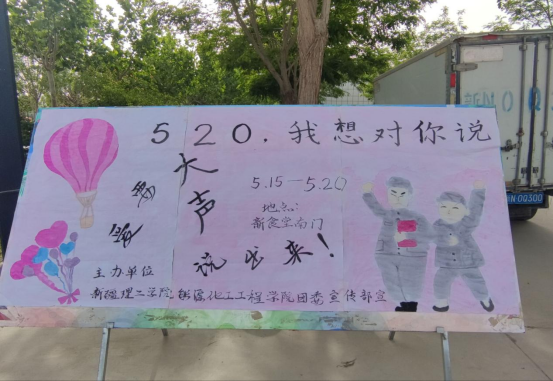 520.我想对你说
爱要大声说出来!
5.15—5.20
地点:
新食堂南门
主办单位
新疆理工学院能源化工工程学院团委宣传部宣